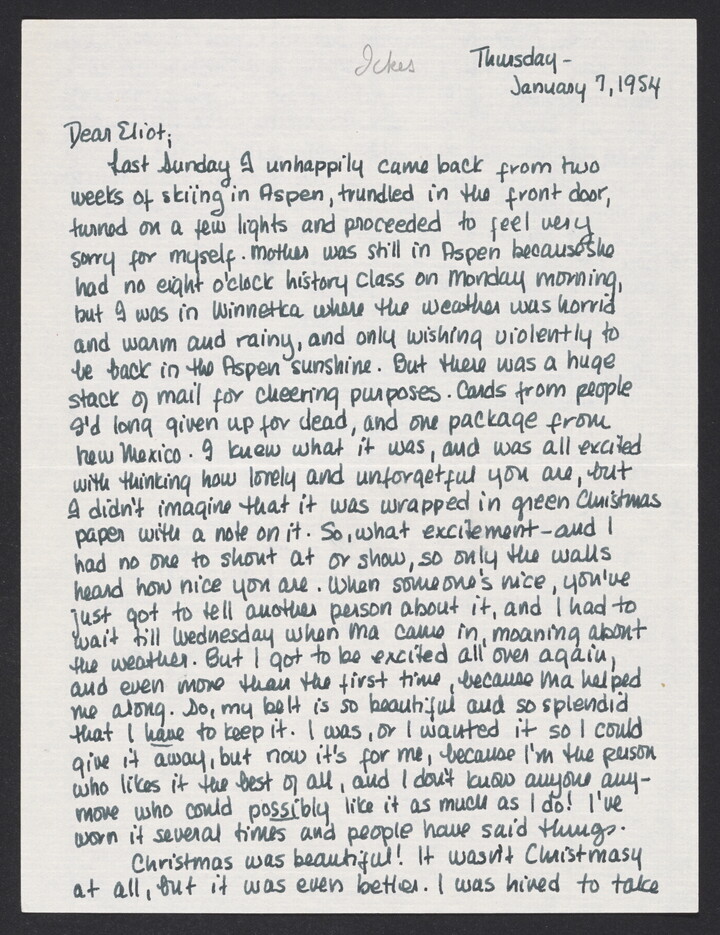 Ickes
Thursday-
January 7, 1954
Dear Eliot;
Last Sunday I unhappily came back from two
weeks of skiing in Aspen, trundled in the front door,
turned on a few lights and proceeded to feel very
sorry for myself. Mother was still in Aspen because she
had no eight o'clock history class on Monday morning,
but I was in Winnetka where the weather was horrid
and warm and rainy, and only wishing violently to
be back in the Aspen sunshine. But there was a huge
stack of mail for cheering purposes. Cards from people
I'd long given up for dead, and one package from
New Mexico. I knew what it was, and was all excited
with thinking how lovely and unforgetful you are, but
I didn't imagine that it was wrapped in green Christmas
paper with a note on it. So, what excitement - and I
had no one to shout at or show, so only the walls
heard how nice you are. When someone's nice, you've
just got to tell another person about it, and I had to
wait till Wednesday when Ma came in, moaning about
the weather. But I got to be excited all over again,
and even more than the first time, because Ma helped
me along. So, my belt is so beautiful and so splendid
that I have to keep it. I was, or I wanted it so I could
give it away, but now it's for me, because I'm the person
who likes it the best of all, and I don't know anyone any-
more who could possibly like it as much as I do! I've
worn it several times and people have said things.
Christmas was beautiful! It wasn't Christmasy
at all, but it was even better. I was hired to take